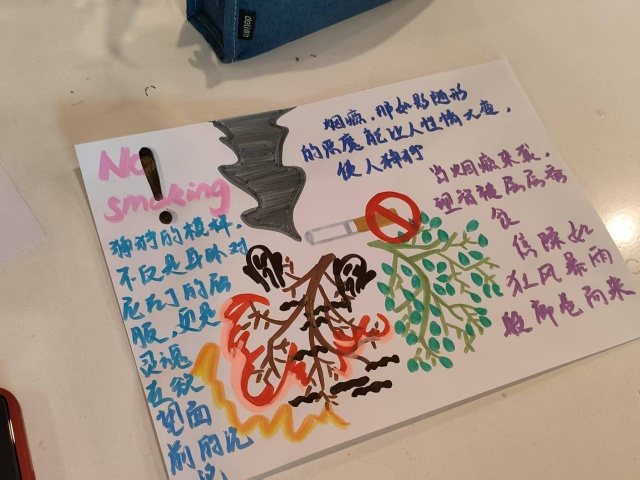 No
smoking
狰狞的模样,
不仅是身体对
尼古丁的屈
服,更是
灵魂
在欲
望面
前的沉
沦
烟瘾,那如影随形
的恶魔能让人性情大变,
使人狰狞
当烟瘾来袭,
理智被层层吞
食
焦躁如
狂风暴雨
般席卷而来
deli